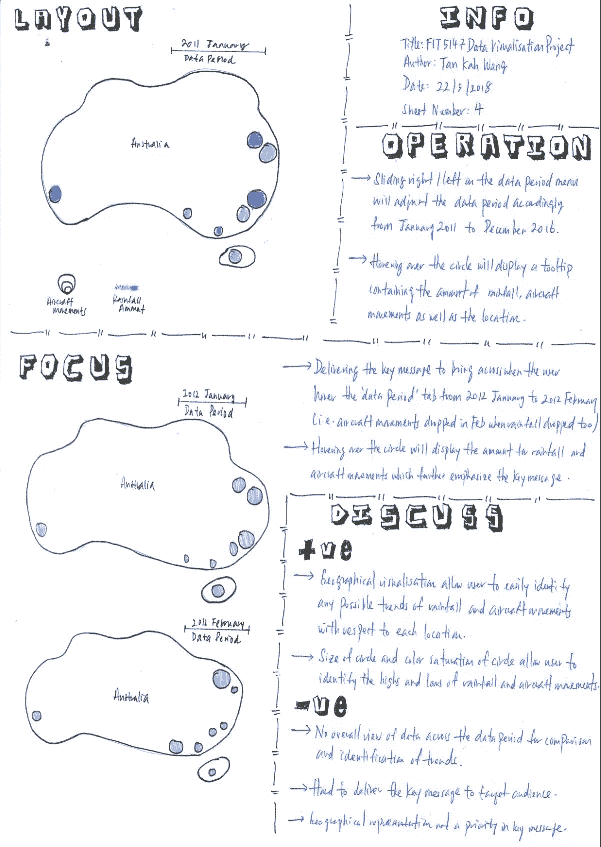 LAYOUT
2011 January
Data Period
Australia
Aircraft
movements
Rainfall
Amount
INFO
Title: FIT5147 Data Visualisation Project
Author: Tan Kah Wang
Date: 22/5/2018
Sheet Number: 4
OPERATION
→ Sliding right/left on the data period menu
will adjust the data period accordingly
from January 2011 to December 2016.
→ Hovering over the circle will display a tooltip
containing the amount of rainfall, aircraft
movements as well as the location.
FOCUS
2012 January
Data Period
Australia
2012 February
Data Period
Australia
→ Delivering the key message to bring across when the user
hover the 'data Period' tab from 2012 January to 2012 February
(i.e. aircraft movements dropped in Feb when rainfall dropped too)
→ Hovering over the circle will display the amount for rainfall and
aircraft movements which further emphasize the key message.
DISCUSS
+ve
→ Geographical visualisation allow user to easily identify
any possible trends of rainfall and aircraft movements
with respect to each location.
→ Size of circle and color saturation of circle allow user to
identify the highs and lows of rainfall and aircraft movements.
-ve
→ No overall view of data across the data period for comparison
and identification of trends.
→ Hard to deliver the key message to target audience.
→ Geographical representation not a priority in key message.